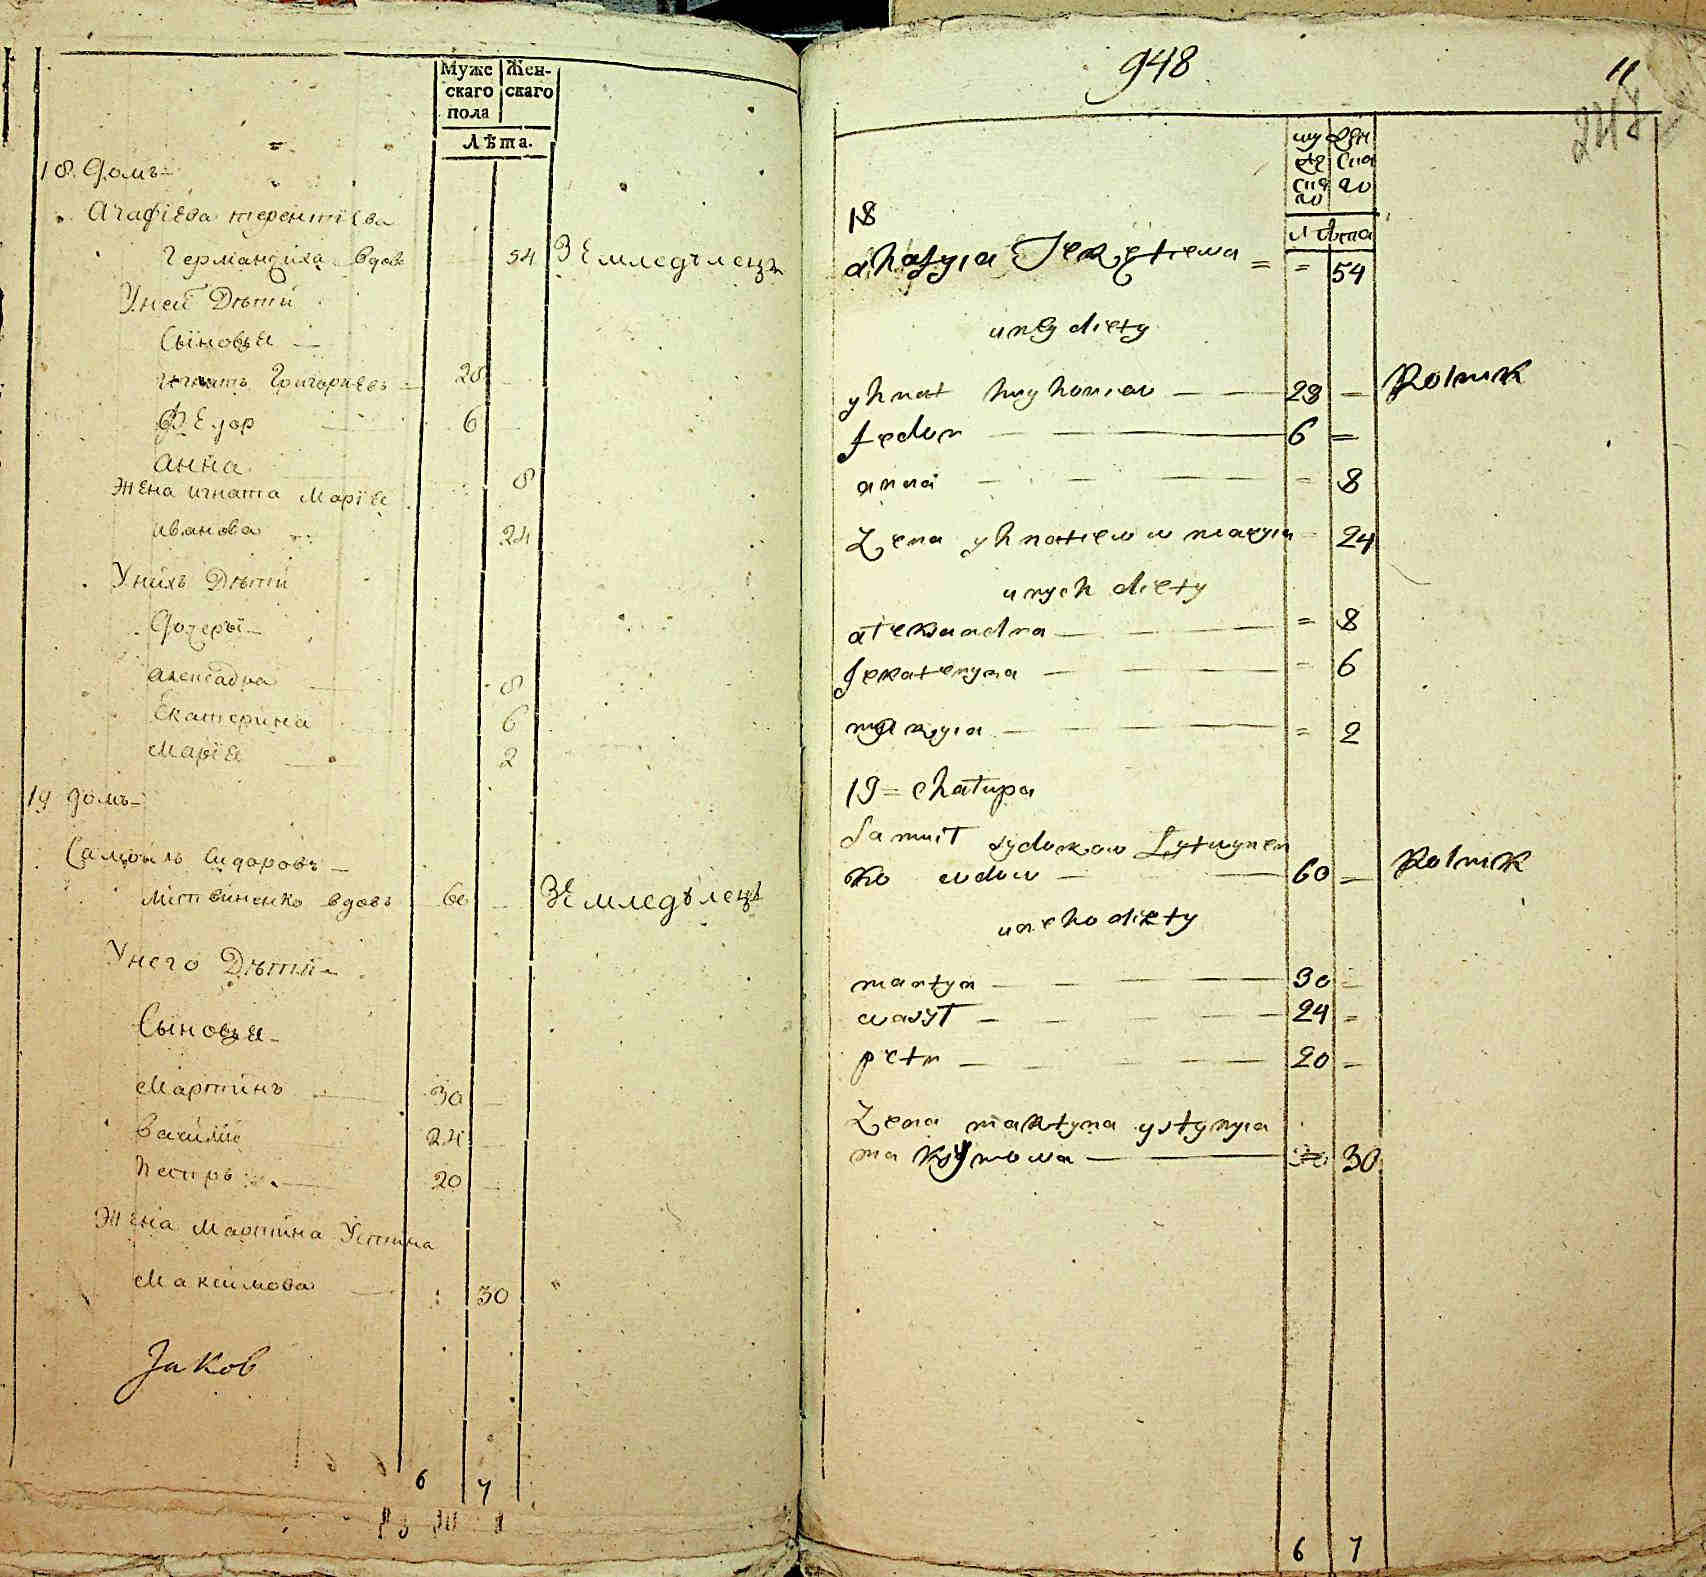 Муже
скаго
пола
Жен-
скаго
Лѣта.
18 домъ
Агафїева терентїева
Германдиха вдова 54 Земледѣлецъ
У ней Дѣти
Сыновья
игнатъ Григориевъ 28
Федор 6
анна 8
Жена игната Марїя
иванова 24
У нихъ Дѣти
дочеры
алексадра 8
Екатерина 6
Марїя 2
19 домъ
Самуилъ Сидоровъ
литвиненко вдовъ 60 Земледѣлецъ
У него Дѣти
Сыновья
Мартинъ 30
василїе 24
Петръ 20
Жена Мартина Устина
Максимова 30
Jakob
6 7
948
11
му
же
ска
го
жен
ска
го
лѣта
18
ahafyia Terętiewa = = 54
u nÿ diety
yhnat hryhoriew — 28 — Rolnik
fedor — 6 =
anna — = 8
Zena yhnatiewa marÿia = 24
u nych diety
alexandra — = 8
Jekateryna — = 6
maryia — = 2
19 = chałupa
Samuił sydorow Lytwynen
ko wdow — 60 — Rolnik
u neho diety
martyn — 30 =
wasÿł — 24 =
petr — 20 —
Zena martyna ystynyia
maksymowa — 30
6 7